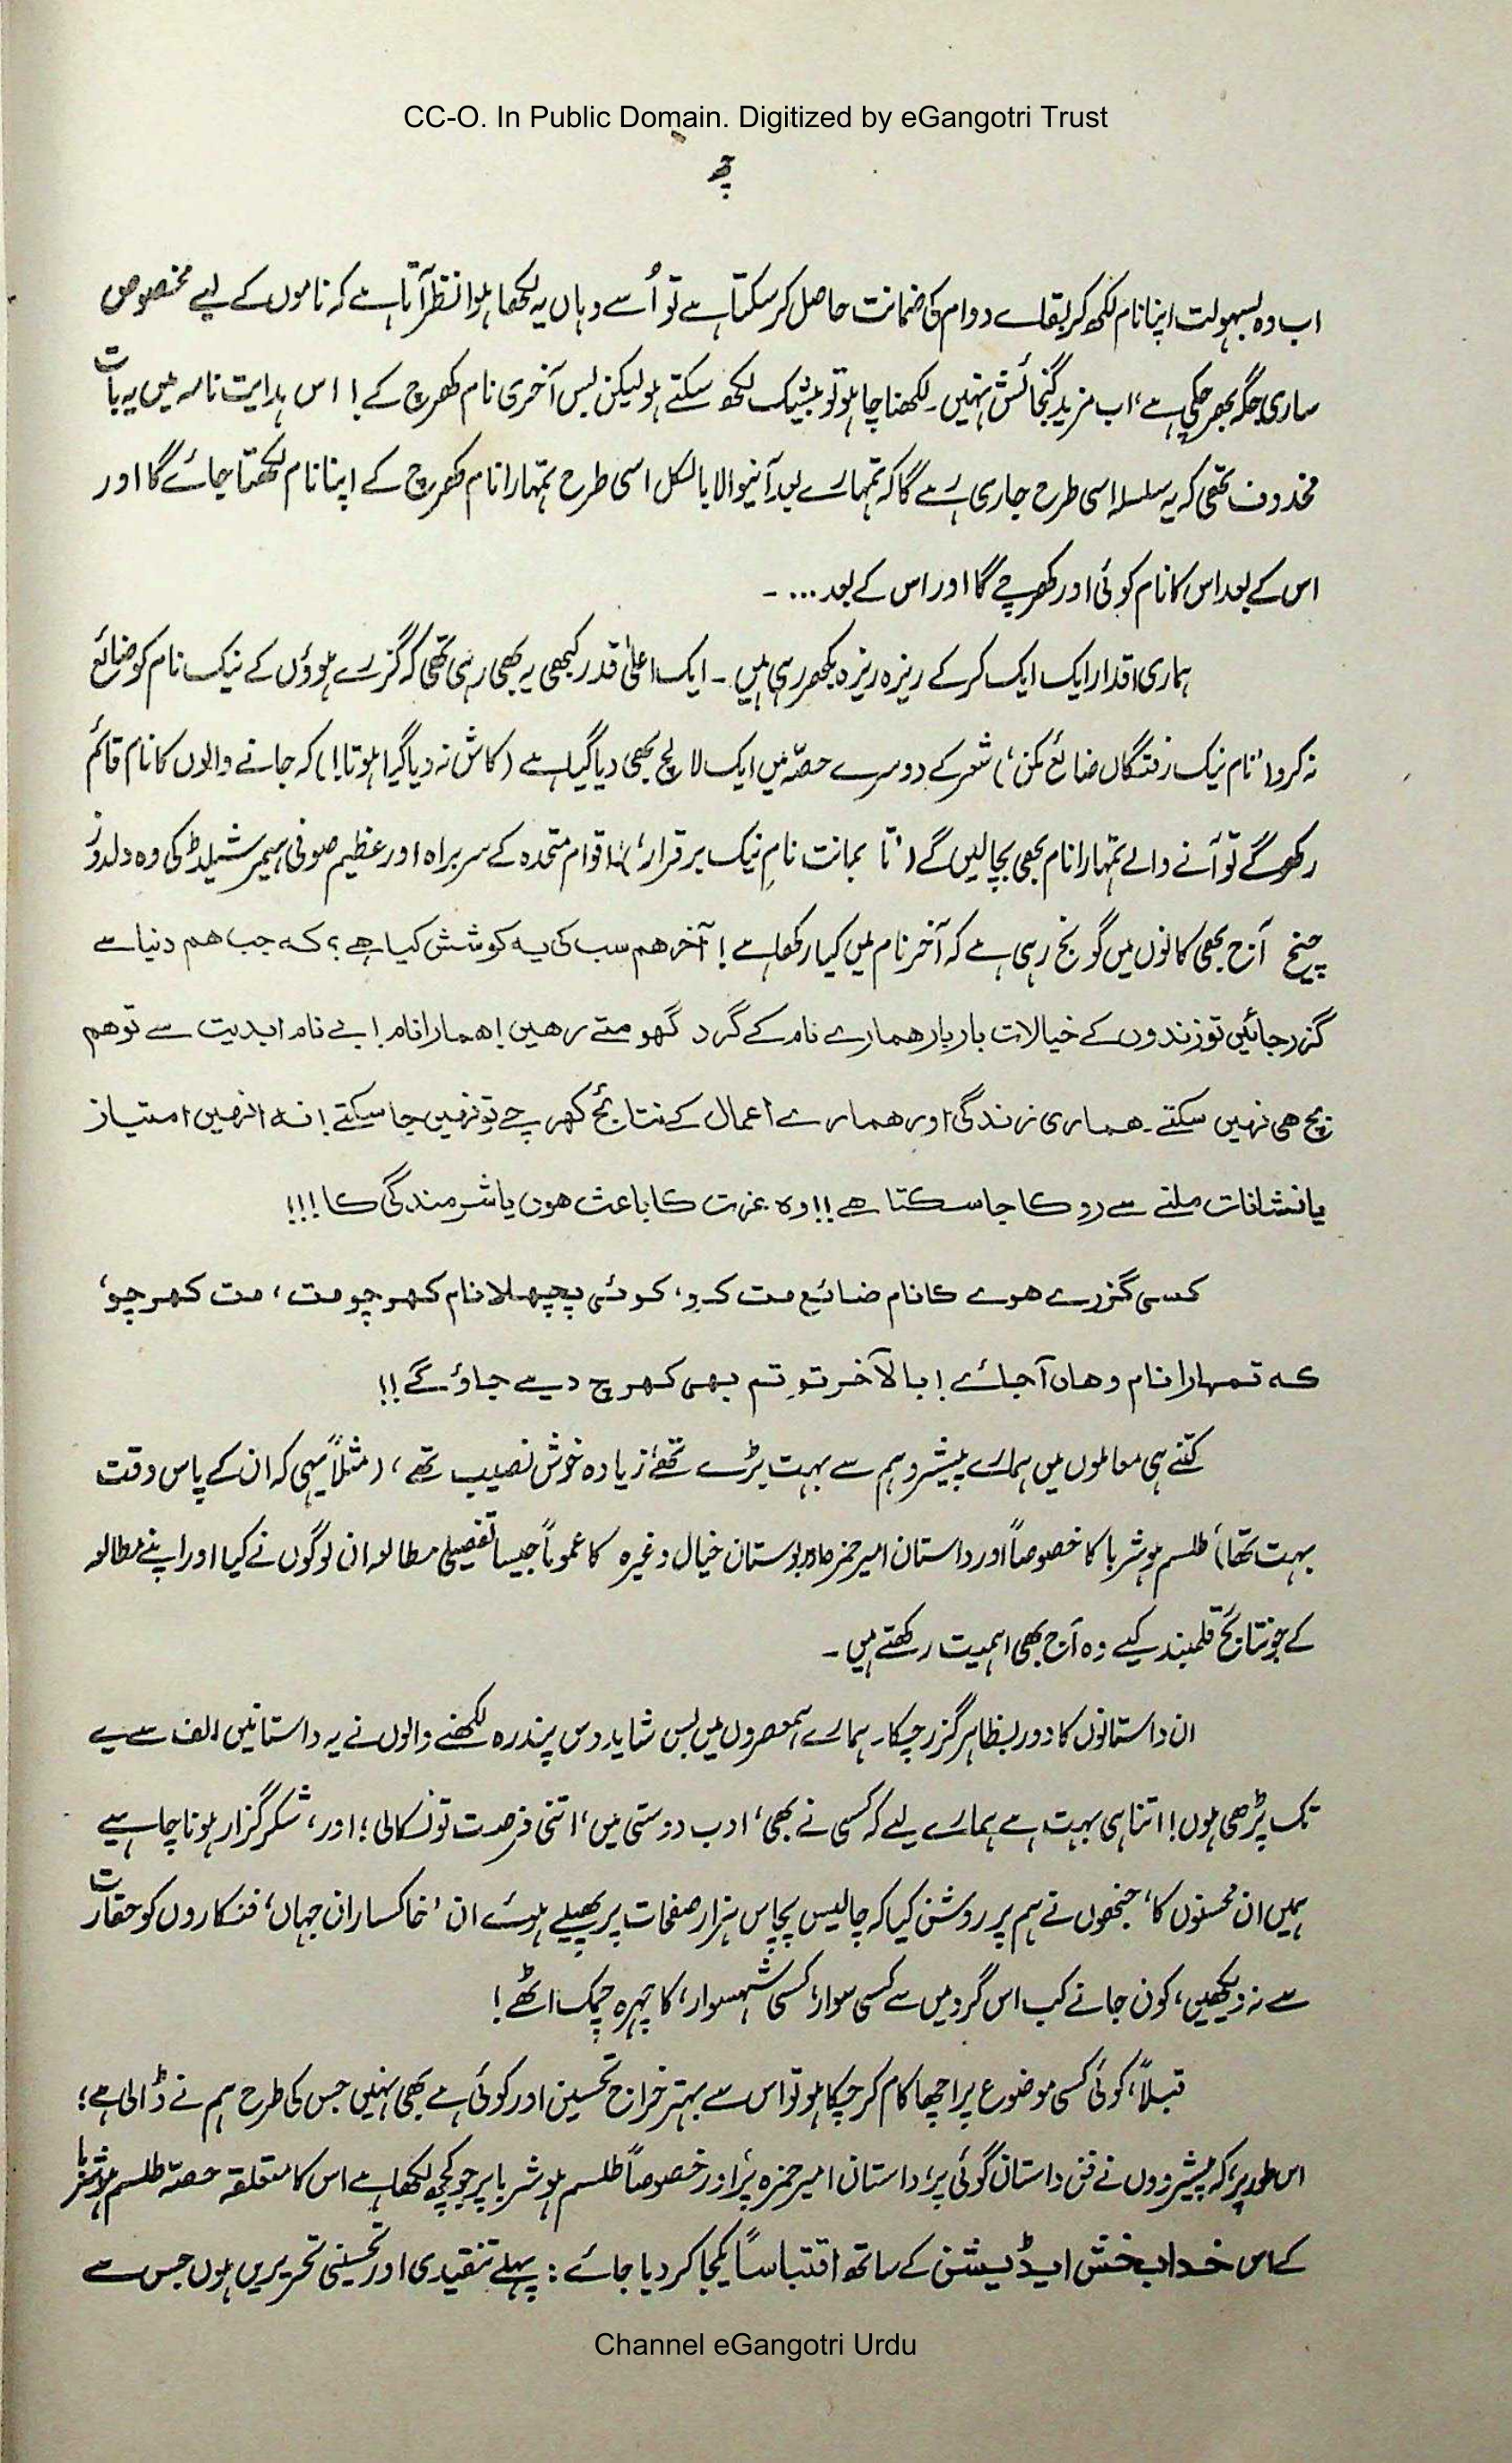 CC-O. In Public Domain. Digitized by eGangotri Trust
اب وہ بسہولت اپنا نام لکھ کر بقاے دوام کی ضمانت حاصل کر سکتا ہے تو اُسے وہاں یہ لکھا ہوا نظر آتا ہے کہ ناموں کے لیے مخصوص
ساری جگہ بھر چکی ہے، اب مزید گنجائش نہیں۔ لکھنا چاہو تو بیشک لکھ سکتے ہو لیکن بس آخری نام کھرچ کے! اس ہدایت نامہ میں یہ بات
محذوف تھی کہ یہ سلسلہ اسی طرح جاری رہے گا کہ تمہارے بعد آنیوالا بالکل اسی طرح تمہارا نام کھرچ کے اپنا نام لکھتا جائے گا اور
اس کے بعد اس کا نام کوئی اور کھرچے گا اور اس کے بعد ... ۔
ہماری اقدار ایک ایک کر کے ریزہ ریزہ بکھر رہی ہیں ۔ ایک اعلیٰ قدر کبھی یہ بھی رہی تھی کہ گزرے ہوؤں کے نیک نام کو ضائع
نہ کرو ('نام نیک رفتگاں ضائع مکن') شعر کے دوسرے حصّہ میں ایک لالچ بھی دیا گیا ہے (کاش نہ دیا گیا ہوتا!) کہ جانے والوں کا نام قائم
رکھوگے تو آنے والے تمہارا نام بھی بچالیں گے ('تا بماند نامِ نیک برقرار')! اقوام متحدہ کے سربراہ اور عظیم صوفی ہیمر شیلڈ کی وہ دلدوز
چیخ آج بھی کانوں میں گونج رہی ہے کہ آخر نام میں کیا رکھا ہے! آخر ہم سب کی یہ کوشش کیا ہے؟ کہ جب ہم دنیا سے
گزر جائیں تو زندوں کے خیالات بار بار ہمارے نام کے گرد گھومتے رہیں! ہمارا نام! بے نام ابدیت سے تو ہم
بچ ہی نہیں سکتے۔ ہماری زندگی اور ہمارے اعمال کے نتائج کھرچے تو نہیں جاسکتے! نہ انہیں امتیاز
یا نشانات ملنے سے روکا جاسکتا ہے!! وہ عزت کا باعث ہوں یا شرمندگی کا!!!
کسی گزرے ہوے کا نام ضائع مت کرو، کوئی پچھلا نام کھرچو مت، مت کھرچو،
کہ تمہارا نام وہاں آجائے! بالآخر تو تم بھی کھرچ دیے جاؤگے!!
کتنے ہی معاملوں میں ہمارے پیشرو ہم سے بہت بڑے تھے، زیادہ خوش نصیب تھے، (مثلاً یہی کہ ان کے پاس وقت
بہت تھا) طلسم ہوشربا کا خصوصاً اور داستان امیر حمزہ اور بوستان خیال وغیرہ کا عموماً جیسا تفصیلی مطالعہ ان لوگوں نے کیا اور اپنے مطالعہ
کے جو نتائج قلمبند کیے وہ آج بھی اہمیت رکھتے ہیں ۔
ان داستانوں کا دور بظاہر گزر چکا۔ ہمارے ہمعصروں میں بس شاید دس پندرہ لکھنے والوں نے یہ داستانیں الف سے یے
تک پڑھی ہوں! اتنا ہی بہت ہے ہمارے لیے کہ کسی نے بھی، ادب دوستی میں، اتنی فرصت تو نکالی؛ اور، شکر گزار ہونا چاہیے
ہمیں ان محسنوں کا، جنھوں نے ہم پر روشن کیا کہ چالیس پچاس ہزار صفحات پر پھیلے ہوئے ان 'خاکساران جہاں' فنکاروں کو حقارت
سے نہ دیکھیں، کون جانے کب اس گرد میں سے کسی سوار، کسی شہسوار، کا چہرہ چمک اٹھے!
قبلاً، کوئی کسی موضوع پر اچھا کام کر چکا ہو تو اس سے بہتر خراج تحسین اور کوئی ہے بھی نہیں جس کی طرح ہم نے ڈالی ہے؛
اس طور پر، کہ پیشرووں نے فن داستان گوئی پر، داستان امیر حمزہ پر، اور خصوصاً طلسم ہوشربا پر جو کچھ لکھا ہے اس کا متعلقہ حصّہ طلسم ہوشربا
کے اس خدا بخش ایڈیشن کے ساتھ اقتباساً یکجا کر دیا جائے: پہلے تنقیدی اور تحسینی تحریریں ہوں جس سے
Channel eGangotri Urdu